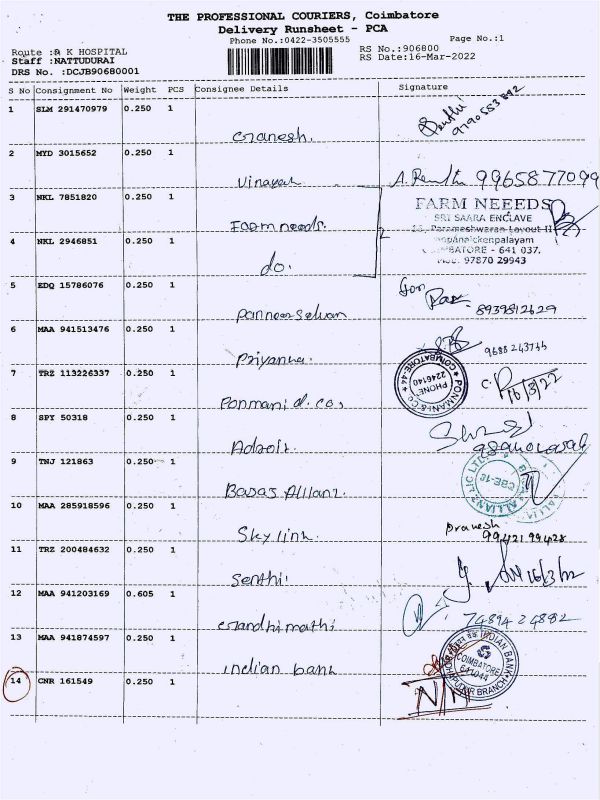 THE PROFESSIONAL COURIERS, Coimbatore
Delivery Runsheet - PCA
Phone No.:0422-3505555
Page No.:1
Route :R K HOSPITAL
RS No.:906800
Staff :NATTUDURAI
RS Date:16-Mar-2022
DRS No. :DCJB90680001
S No Consignment No Weight PCS Consignee Details Signature
1 SLM 291470979 0.250 1
Ganesh. 9790553892
2 MYD 3015652 0.250 1
Vinayak 9965877099
3 NKL 7851820 0.250 1
Farm needs.
FARM NEEEDS
SRI SAARA ENCLAVE
Parameshwaran Layout II
COIMBATORE - 641 037.
97870 29943
4 NKL 2946851 0.250 1
do.
5 EDQ 15786076 0.250 1
Panneerselvam for 8939812629
6 MAA 941513476 0.250 1
Priyanka.
7 TRZ 113226337 0.250 1
Ponmani & co,
PONMANI & CO
PHONE
2246140
COIMBATORE-44
16/3/22
8 SPY 50318 0.250 1
Adroit
9 TNJ 121863 0.250 1
Bajaj Allianz.
10 MAA 285918596 0.250 1
Sky link. Pranesh
99421 99428
11 TRZ 200484632 0.250 1
Senthi.
16/3/22
12 MAA 941203169 0.605 1
Gandhimathi 7489424882
13 MAA 941874597 0.250 1
indian bank
INDIAN BANK
COIMBATORE
641044
BRANCH
14 CNR 161549 0.250 1